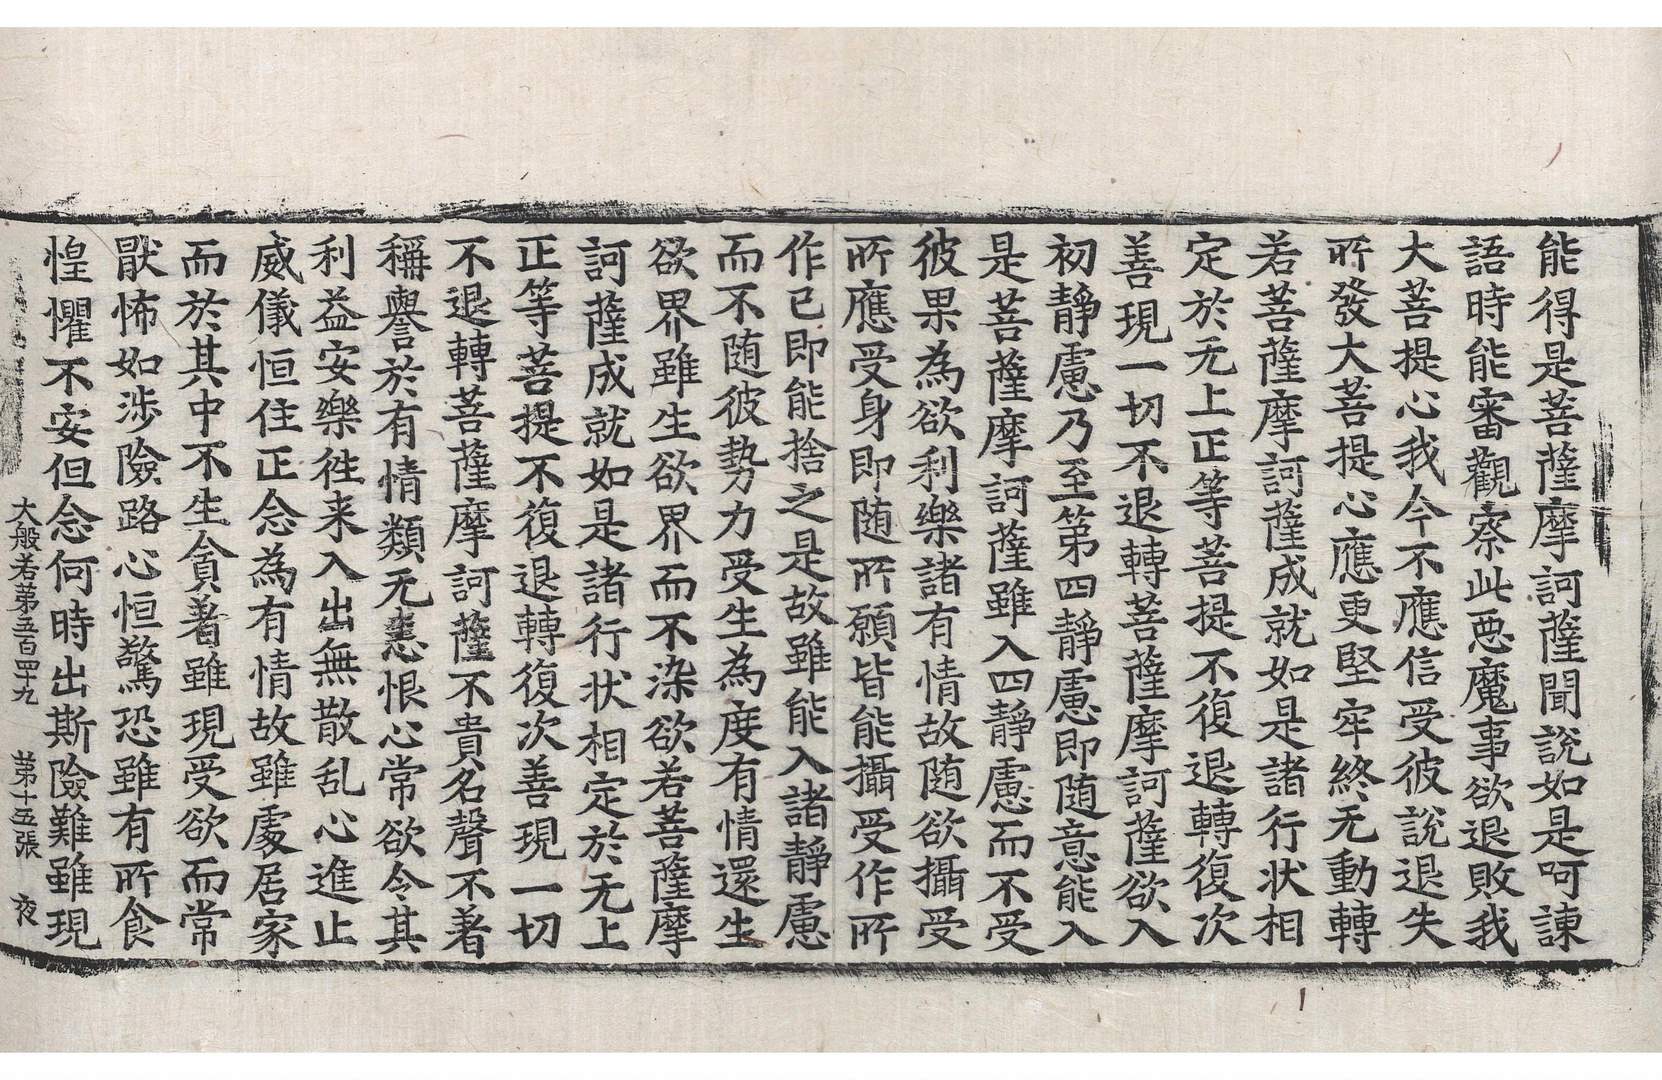 能得是菩薩摩訶薩聞說如是呵諫
語時能審觀察此惡魔事欲退敗我
大菩提心我今不應信受彼說退失
所發大菩提心應更堅牢終无動轉
若菩薩摩訶薩成就如是諸行狀相
定於无上正等菩提不復退轉復次
善現一切不退轉菩薩摩訶薩欲入
初靜慮乃至第四靜慮即随意能入
是菩薩摩訶薩雖入四靜慮而不受
彼果為欲利樂諸有情故随欲攝受
所應受身即随所願皆能攝受作所
作已即能捨之是故雖能入諸靜慮
而不随彼勢力受生為度有情還生
欲界雖生欲界而不染欲若菩薩摩
訶薩成就如是諸行狀相定於无上
正等菩提不復退轉復次善現一切
不退轉菩薩摩訶薩不貴名聲不著
稱譽於有情類无恚恨心常欲令其
利益安樂徃来入出無散乱心進止
威儀恒住正念為有情故雖處居家
而於其中不生貪著雖現受欲而常
猒怖如涉險路心恒驚恐雖有所食
惶懼不安但念何時出斯險難雖現
大般若第五百四十九 第十五張 夜